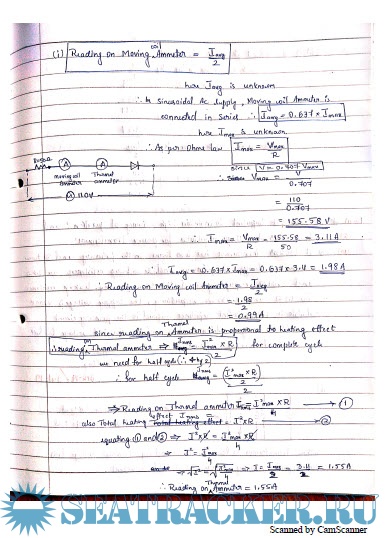 (i) Reading on Moving coil Ammeter = Iavg / 2
here Iavg is unknown
∴ In sinusoidal Ac Supply, Moving coil Ammeter is
connected in Series ∴ Iavg = 0.637 × Imax
here Imax is unknown
∴ As per Ohms law Imax = Vmax / R
since V = 0.707 Vmax
∴ Vmax = V / 0.707
moving coil ammeter
Thermal ammeter
110V
= 110 / 0.707
= 155.58 V
∴ Imax = Vmax / R = 155.58 / 50 = 3.11A
∴ Iavg = 0.637 × Imax = 0.637 × 3.11 = 1.98A
∴ Reading on Moving coil Ammeter = Iavg / 2
= 1.98 / 2
= 0.99A
since reading on Thermal Ammeter is proportional to heating effect
∴ reading on Thermal ammeter ⇒ Irms = I²max × R / 2 for complete cycle
we need for half cycle (∴ ÷ by 2)
∴ for half cycle Irms = (I²max × R / 2) / 2
⇒ Reading on Thermal ammeter Irms = I²max × R / 4 — 1
also Total heating effect Irms = I²R — 2
equating 1 and 2 ⇒ I²R = I²max R / 4
⇒ I² = I²max / 4
⇒ √I² = √I²max / 4 ⇒ I = Imax / 2 = 3.11 / 2 = 1.55A
∴ Reading on Thermal Ammeter = 1.55A
SEATRACKER.RU
Scanned by CamScanner